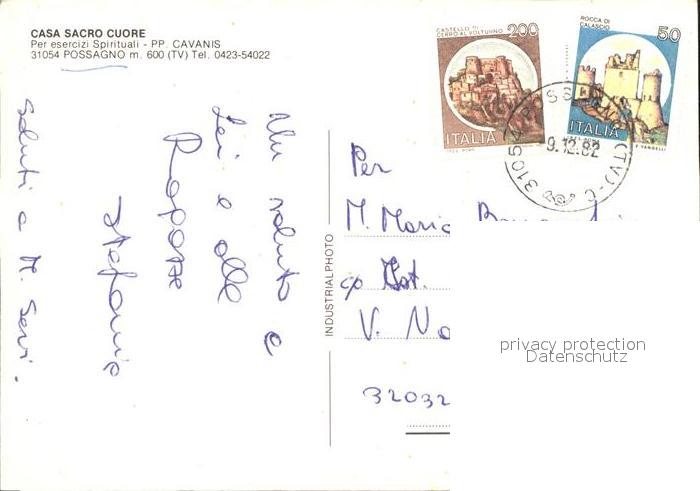 CASA SACRO CUORE
Per esercizi Spirituali - PP. CAVANIS
31054 POSSAGNO m. 600 (TV) Tel. 0423-54022
CASTELLO DI
CERRO AL VOLTURNO 200
ITALIA
ROCCA DI
CALASCIO 50
ITALIA
9.12.82
Un saluto a
Lei e alle
Ragazze
Stefania
Saluti a M. Servi.
INDUSTRIALPHOTO
Per
M. Maria
c/o Ist.
V. No
32032
privacy protection
Datenschutz